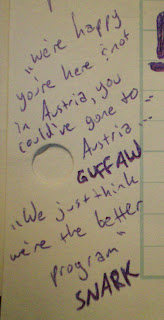 „we're happy
you're here & not
in Austria, you
could've gone to
Austria...
GUFFAW
„We just think
we're the better
program"
SNARK